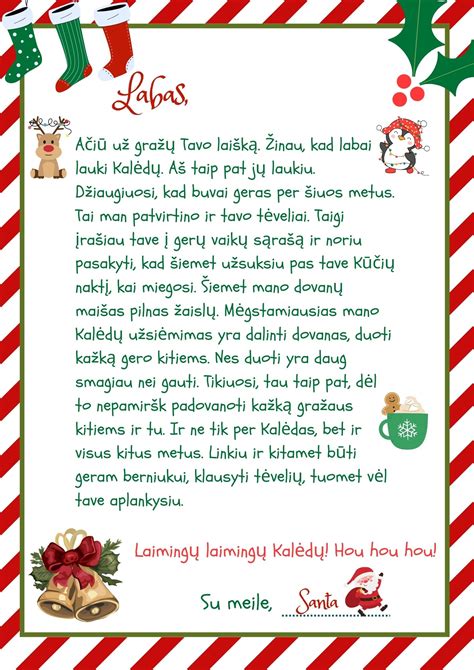 Labas,
Ačiū už gražų Tavo laišką. Žinau, kad labai
lauki Kalėdų. Aš taip pat jų laukiu.
Džiaugiuosi, kad buvai geras per šiuos metus.
Tai man patvirtino ir tavo tėveliai. Taigi
įrašiau tave į gerų vaikų sąrašą ir noriu
pasakyti, kad šiemet užsuksiu pas tave Kūčių
naktį, kai miegosi. Šiemet mano dovanų
maišas pilnas žaislų. Mėgstamiausias mano
Kalėdų užsiėmimas yra dalinti dovanas, duoti
kažką gero kitiems. Nes duoti yra daug
smagiau nei gauti. Tikiuosi, tau taip pat, dėl
to nepamiršk padovanoti kažką gražaus
kitiems ir tu. Ir ne tik per Kalėdas, bet ir
visus kitus metus. Linkiu ir kitamet būti
geram berniukui, klausyti tėvelių, tuomet vėl
tave aplankysiu.
Laimingų laimingų Kalėdų! Hou hou hou!
Su meile, Santa